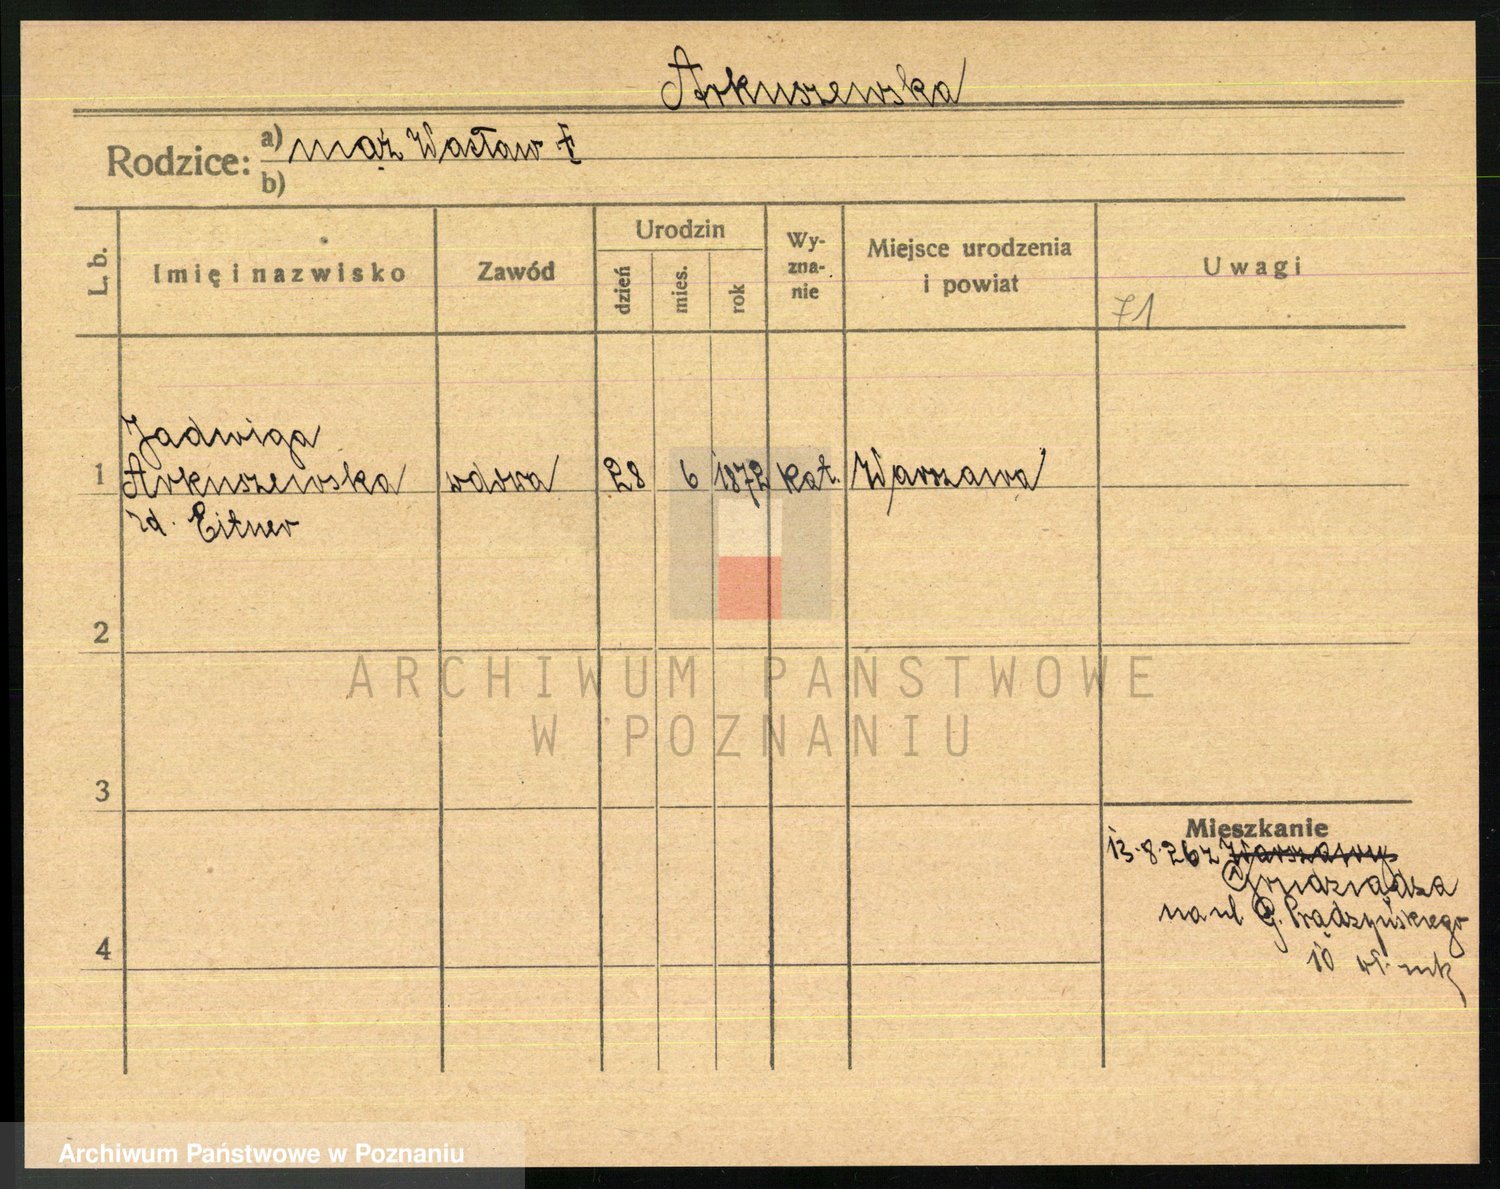 Arkuszewska
Rodzice: a) mąż Wacław †
b)
L. b.
Imię i nazwisko
Zawód
Urodzin
dzień
mies.
rok
Wy-
zna-
nie
Miejsce urodzenia
i powiat
Uwagi
71
Jadwiga
1 Arkuszewska wdowa 28 6 1872 kat. Warszawa
zd. Eitner
2
ARCHIWUM PAŃSTWOWE
W POZNANIU
3
Mieszkanie
13.8.26 z Warszawy
Grudziądza
na ul G. Prądzyńskiego
4
10
Archiwum Państwowe w Poznaniu